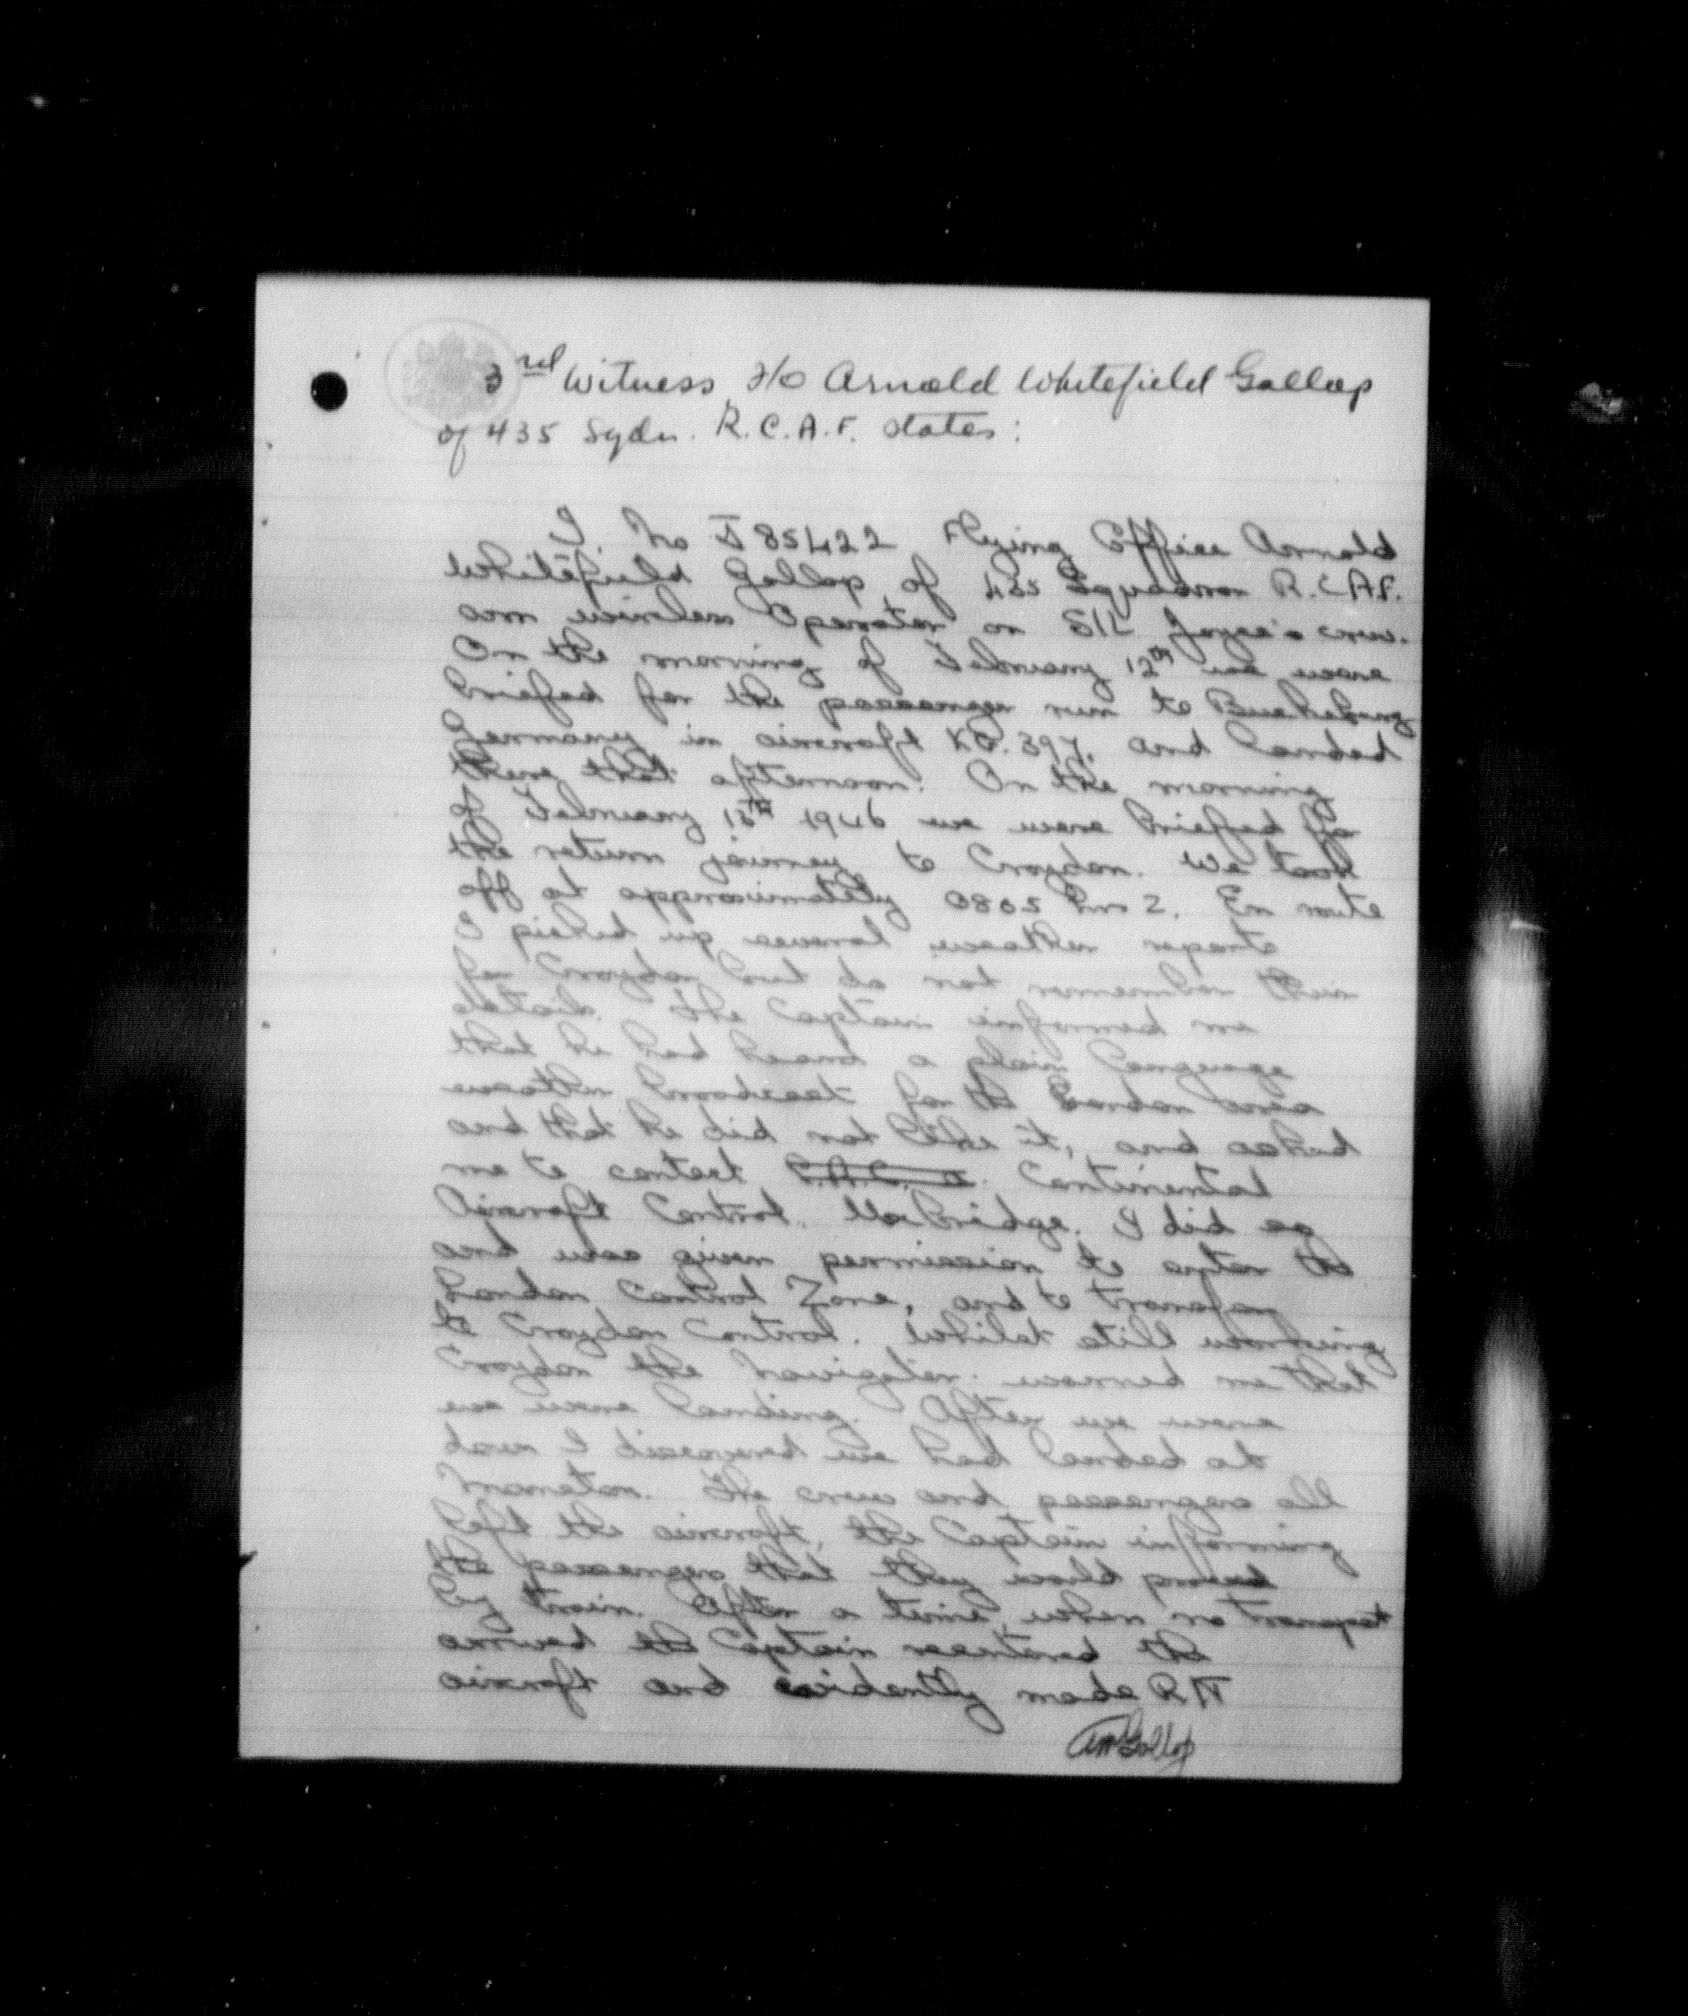 3rd Witness, F/O Arnold Whitefield Gallop
of 435 Sqdn. R.C.A.F. states:
I. No 85422 Flying Officer Arnold
Whitefield Gallop of 435 Squadron R.C.A.F.
am wireless Operator on F/L Joyce's crew.
On the morning of February 12th we were
briefed for the passenger run to Buckeburg
Germany in aircraft KG. 397. and landed
there that afternoon. On the morning
of February 13th 1946 we were briefed for
the return journey to Croydon. We took
off to approximately 0802 hrs Z. En route
I picked up several weather reports
of Croydon but do not remember their
details. The Captain informed me
that he had heard a plain language
weather broadcast for the London area
and that he did not like it, and asked
me to contact Continental
Aircraft Control Uxbridge. I did so
and was given permission to enter the
London Control Zone, and to transfer
to Croydon Control. Whilst still working
Croydon the Navigator warned me that
we were landing. After we were
had landed
The crew and passengers all
left the aircraft, the Captain informing
the passengers that they
by train. After a time, when no transport
arrived the Captain reentered the
aircraft and evidently made R/T
AWGallop